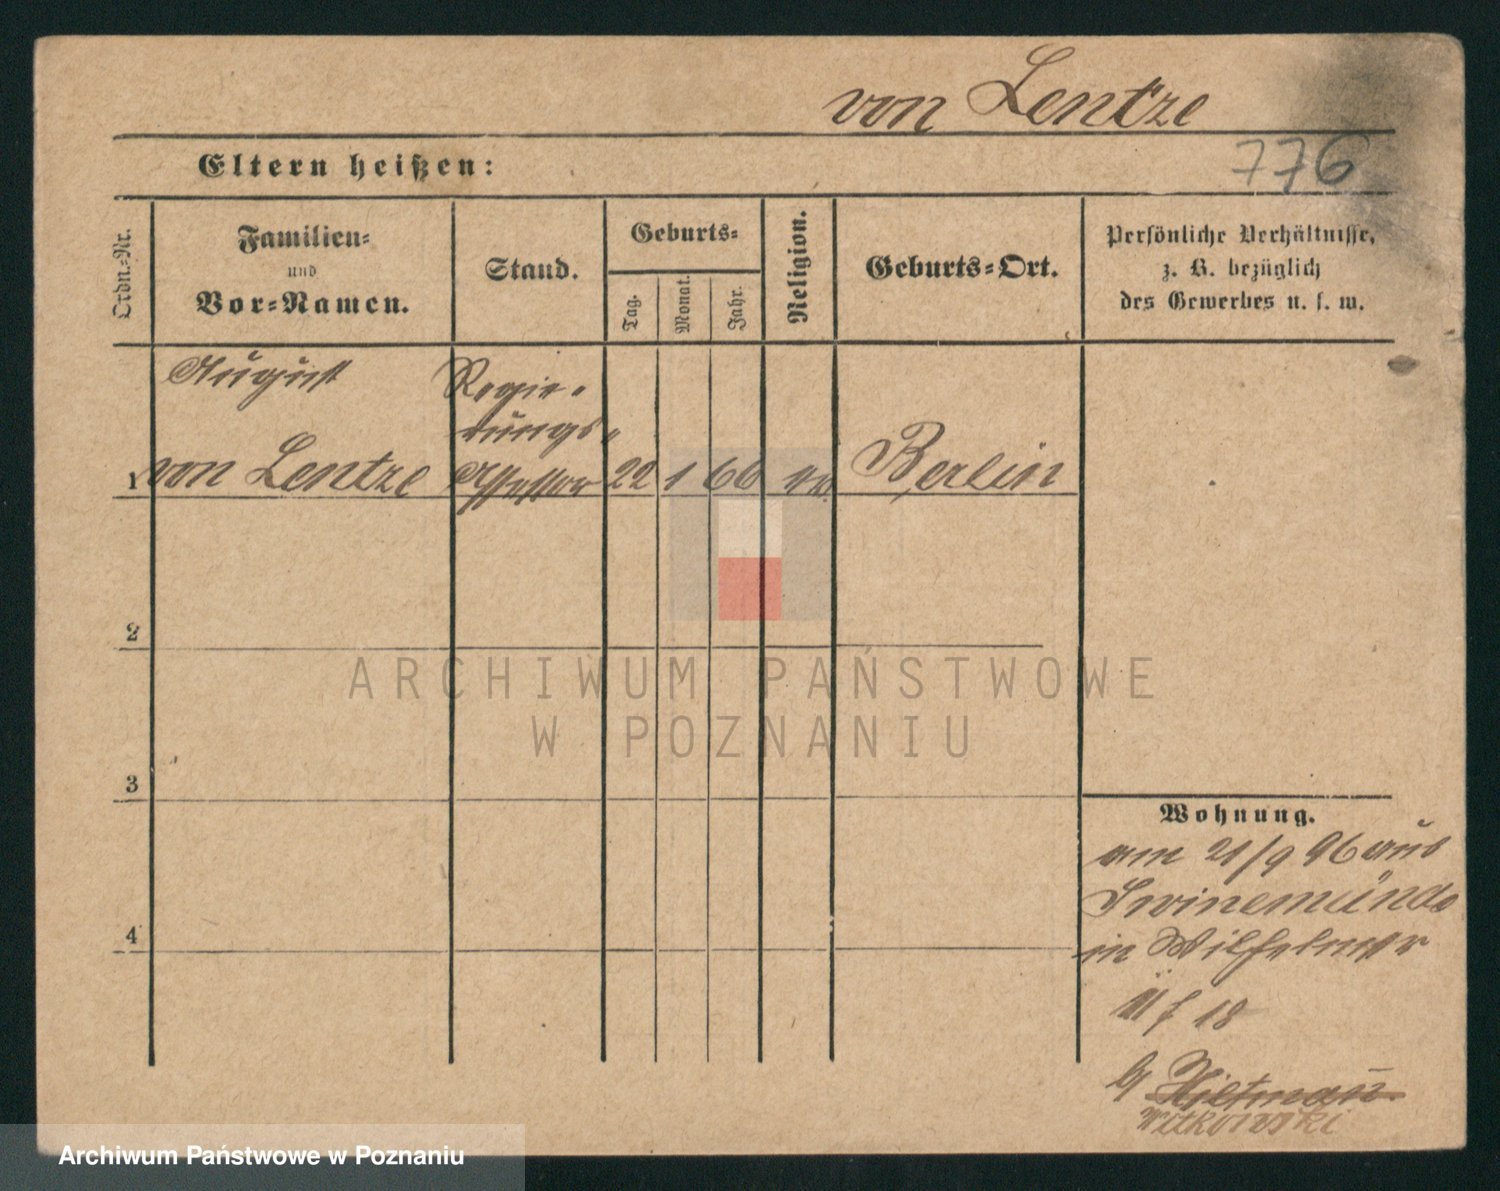 von Lentze
Eltern heißen:
776
Ordn.-Nr.
Familien-
und
Vor-Namen.
Stand.
Geburts-
Tag.
Monat.
Jahr.
Religion.
Geburts-Ort.
Persönliche Verhältnisse,
z. B. bezüglich
des Gewerbes u. s. w.
August
Regie-
rungs-
1 von Lentze Assessor 22 1 66 ev. Berlin
2
3
4
Wohnung.
am 21/9 96 aus
Swinemünde
in Wilhelmstr
18
b/ Hiltmann
Witkowski
ARCHIWUM PAŃSTWOWE
W POZNANIU
Archiwum Państwowe w Poznaniu